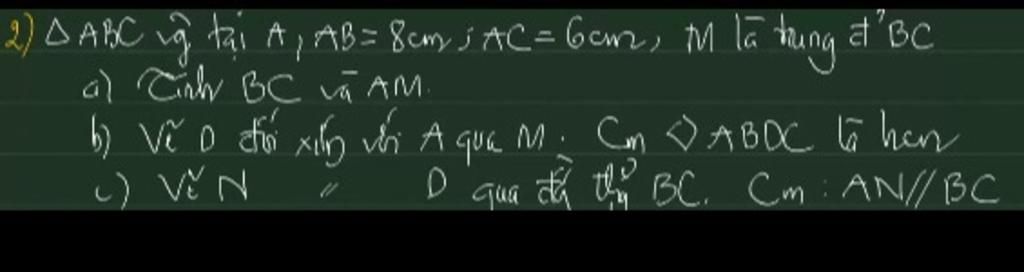 2) △ABC vg̃ tại A, AB = 8cm; AC = 6cm, M là trung đ' BC
a) Tính BC và AM.
b) Vẽ D đối xứng với A qua M. Cm ◇ ABDC là hcn
c) Vẽ N " D qua đg̃ thg̉ BC. Cm : AN // BC